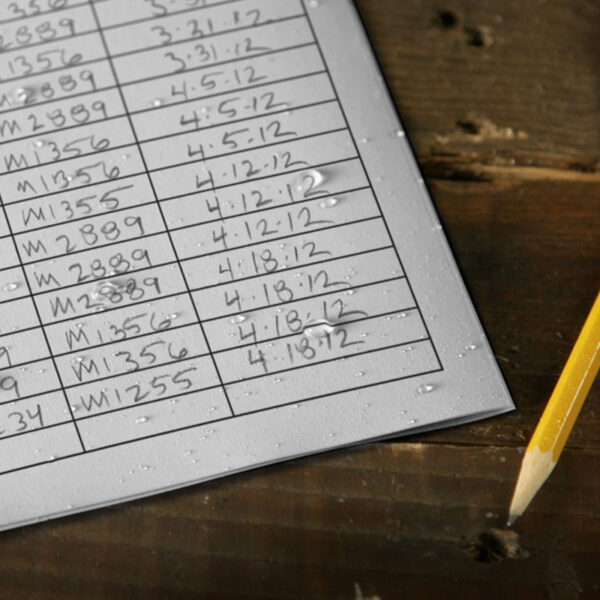 356
2889 3.31
1356 3.31.12
M2889 3.31.12
M2889 4.5.12
M1356 4.5.12
M1356 4.5.12
M1355 4.12.12
M2889 4.12.12
M2889 4.12.12
M2889 4.18.12
9 M1356 4.18.12
9 M1356 4.18.12
234 M1255 4.18.12